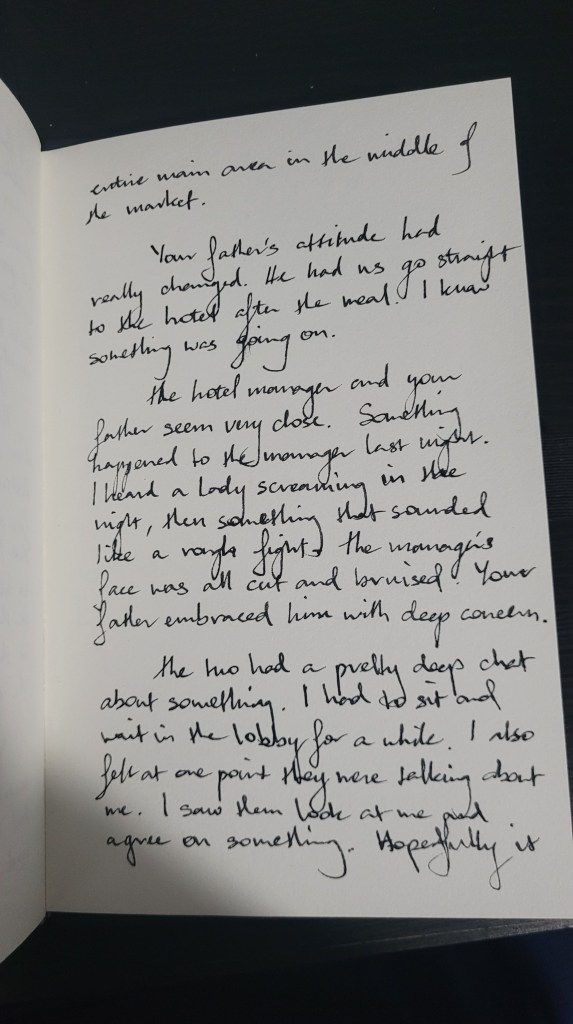 entire main area in the middle of
the market.
Your father's attitude had
really changed. He had us go straight
to the hotel after the meal. I knew
something was going on.
the hotel manager and your
father seem very close. Something
happened to the manager last night.
I heard a lady screaming in the
night, then something that sounded
like a rough fight. the manager's
face was all cut and bruised. Your
father embraced him with deep concern.
the two had a pretty deep chat
about something. I had to sit and
wait in the lobby for a while. I also
felt at one point they were talking about
me. I saw them look at me and
agree on something. Hopefully it